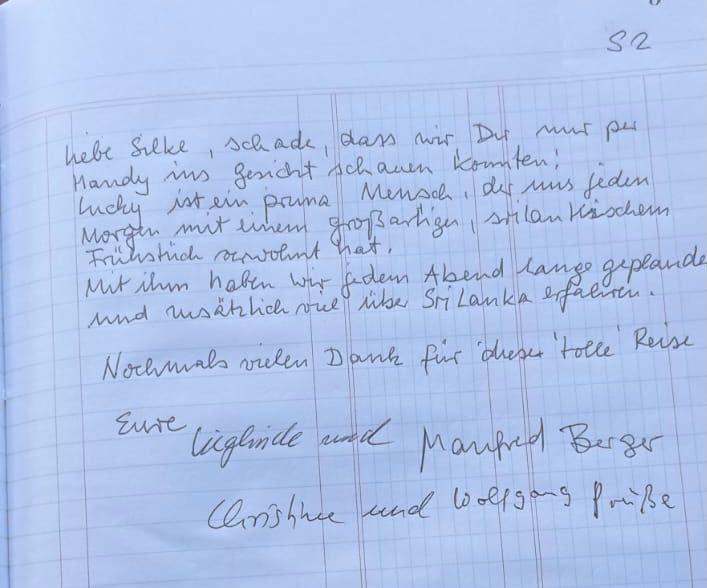 S2
Liebe Silke, schade, dass wir Dir nur per
Handy ins Gesicht schauen konnten!
Lucky ist ein prima Mensch, der uns jeden
Morgen mit einem großartigen, srilankischem
Frühstück verwöhnt hat.
Mit ihm haben wir jedem Abend lange geplaudert
und zusätzlich viel über Sri Lanka erfahren.
Nochmals vielen Dank für diese 'tolle' Reise
Eure
und Manfred Berger
Christine und Wolfgang Prüße